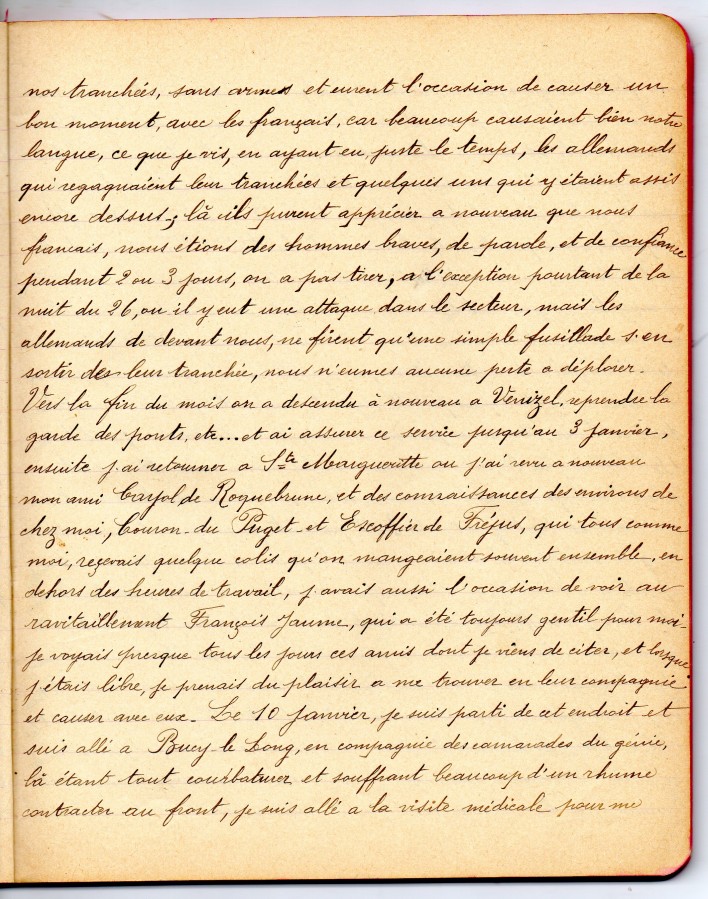 nos tranchées, sans armes et eurent l'occasion de causer un
bon moment, avec les français, car beaucoup causaient bien notre
langue, ce que je vis, en ayant eu juste le temps, les allemands
qui regagnaient leur tranchées et quelques uns qui y étaient assis
encore dessus; là ils purent apprécier a nouveau que nous
francais, nous étions des hommes braves, de parole, et de confiance
pendant 2 ou 3 jours, on a pas tirer, a l'exception pourtant de la
nuit du 26, ou il y eut une attaque dans le secteur, mais les
allemands de devant nous, ne firent qu'une simple fusillade s.en
sortir des leur tranchée, nous n'eumes aucune perte a déplorer.
Vers la fin du mois on a descendu à nouveau a Venizel, reprendre la
garde des ponts, etc... et ai assurer ce service jusqu'au 3 janvier,
ensuite j'ai retourner a Ste Marguerite ou j'ai revu a nouveau
mon ami Cayol de Roquebrune, et des connaissances des environs de
chez moi, Couron du Puget et Escoffier de Fréjus, qui tous comme
moi, reçevais quelque colis qu'on mangeaient souvent ensemble, en
dehors des heures de travail, j'avais aussi l'occasion de voir au
ravitaillement François Jaume, qui a été toujours gentil pour moi-
je voyais presque tous les jours ces amis dont je viens de citer, et lorsque
j'étais libre, je prenais du plaisir a me trouver en leur compagnie
et causer avec eux. Le 10 Janvier, je suis parti de cet endroit et
suis allé a Bucy-le Long, en compagnie des camarades du génie,
là étant tout courbaturer et souffrant beaucoup d'un rhume
contracter au front, je suis allé a la visite médicale pour me